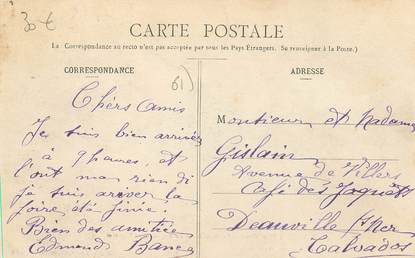 30 €
CARTE POSTALE
(La Correspondance au recto n'est pas acceptée par tous les Pays Étrangers. Se renseigner à la Poste.)
CORRESPONDANCE
61)
Chers Amis
Je suis bien arrivée
à 7 heures, et
l'ont ma rien di
je suis arriver la
foire été finie.
Bien des amitiées
Edmond
ADRESSE
Monsieur et Madame
Gislain
Avenue de Villers
Café des
Deauville s/Mer
Calvados